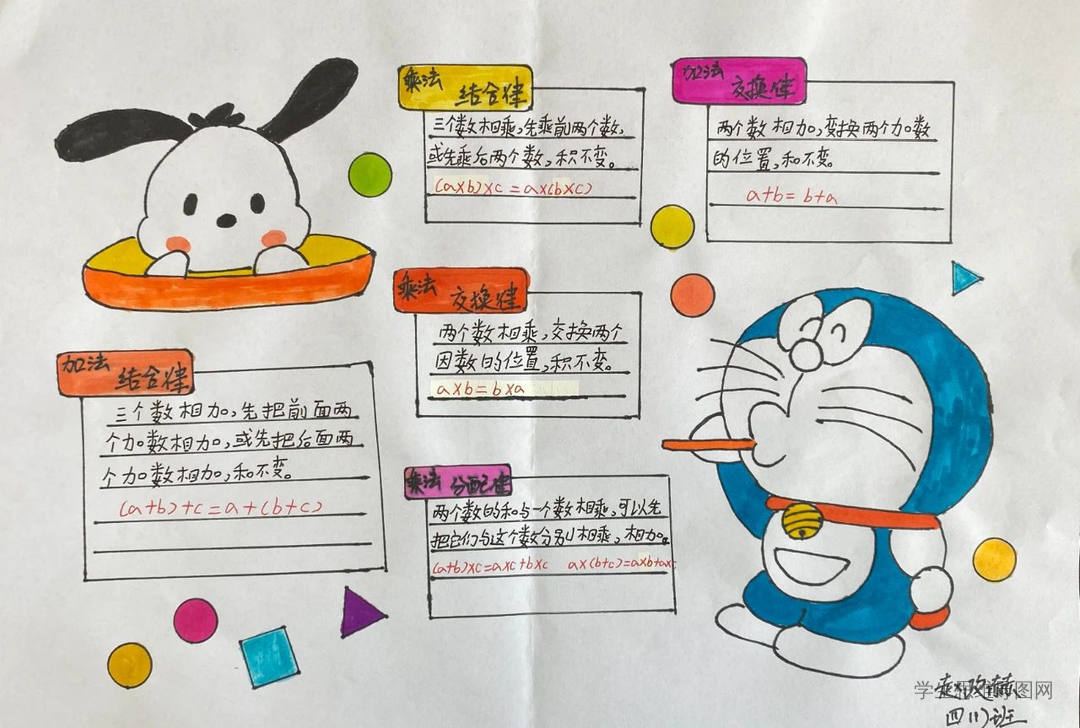 乘法 结合律
三个数相乘,先乘前两个数,
或先乘后两个数,积不变。
(a×b)×c=a×(b×c)
加法 交换律
两个数相加,变换两个加数
的位置,和不变。
a+b=b+a
乘法 交换律
两个数相乘,交换两个
因数的位置,积不变。
a×b=b×a
加法 结合律
三个数相加,先把前面两
个加数相加,或先把后面两
个加数相加,和不变。
(a+b)+c=a+(b+c)
乘法 分配律
两个数的和与一个数相乘,可以先
把它们与这个数分别相乘,相加。
(a+b)×c=a×c+b×c a×(b+c)=a×b+a×c
四(1)班